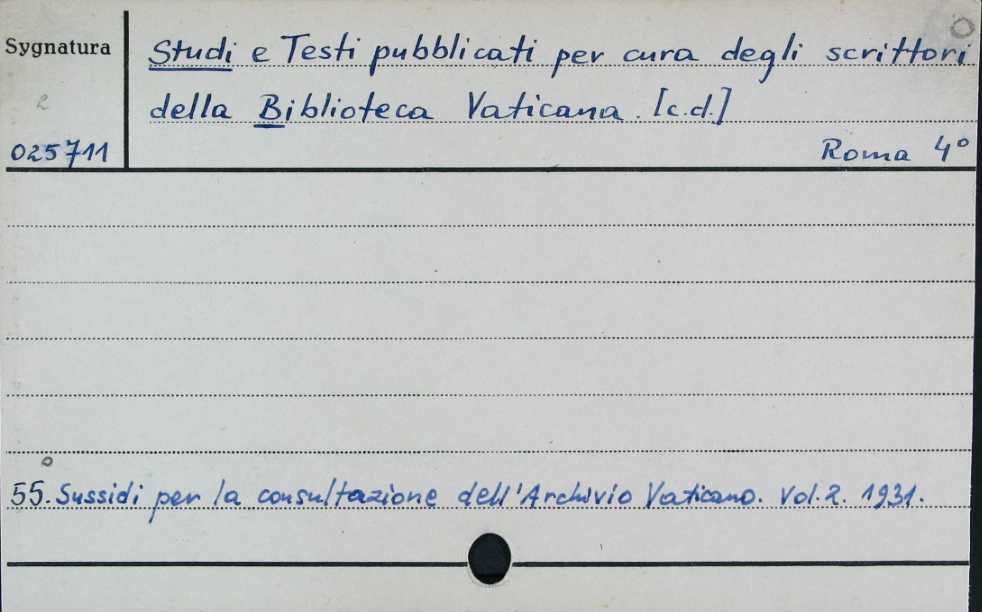 Sygnatura
Studi e Testi pubblicati per cura degli scrittori
della Biblioteca Vaticana. [c.d.]
025711
Roma 4°
55. Sussidi per la consultazione dell'Archivio Vaticano. Vol. 2. 1931.